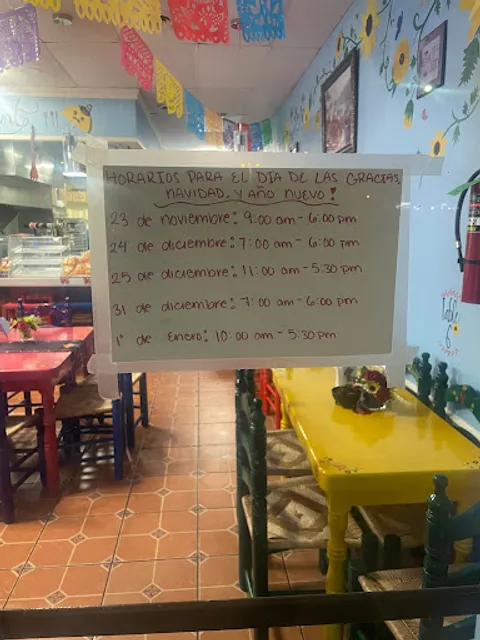 HORARIOS PARA EL DIA DE LAS GRACIAS,
NAVIDAD, Y AÑO NUEVO!
23 de noviembre: 9:00 am - 6:00 pm
24 de diciembre: 7:00 am - 6:00 pm
25 de diciembre: 11:00 am - 5:30 pm
31 de diciembre: 7:00 am - 6:00 pm
1° de Enero: 10:00 am - 5:30 pm
Table
6